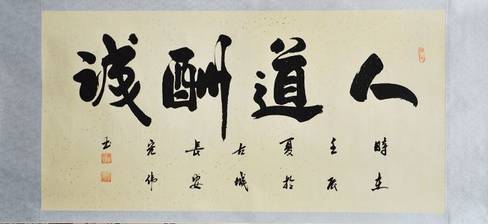 人道酬誠
時在
壬辰
夏於
古城
長安